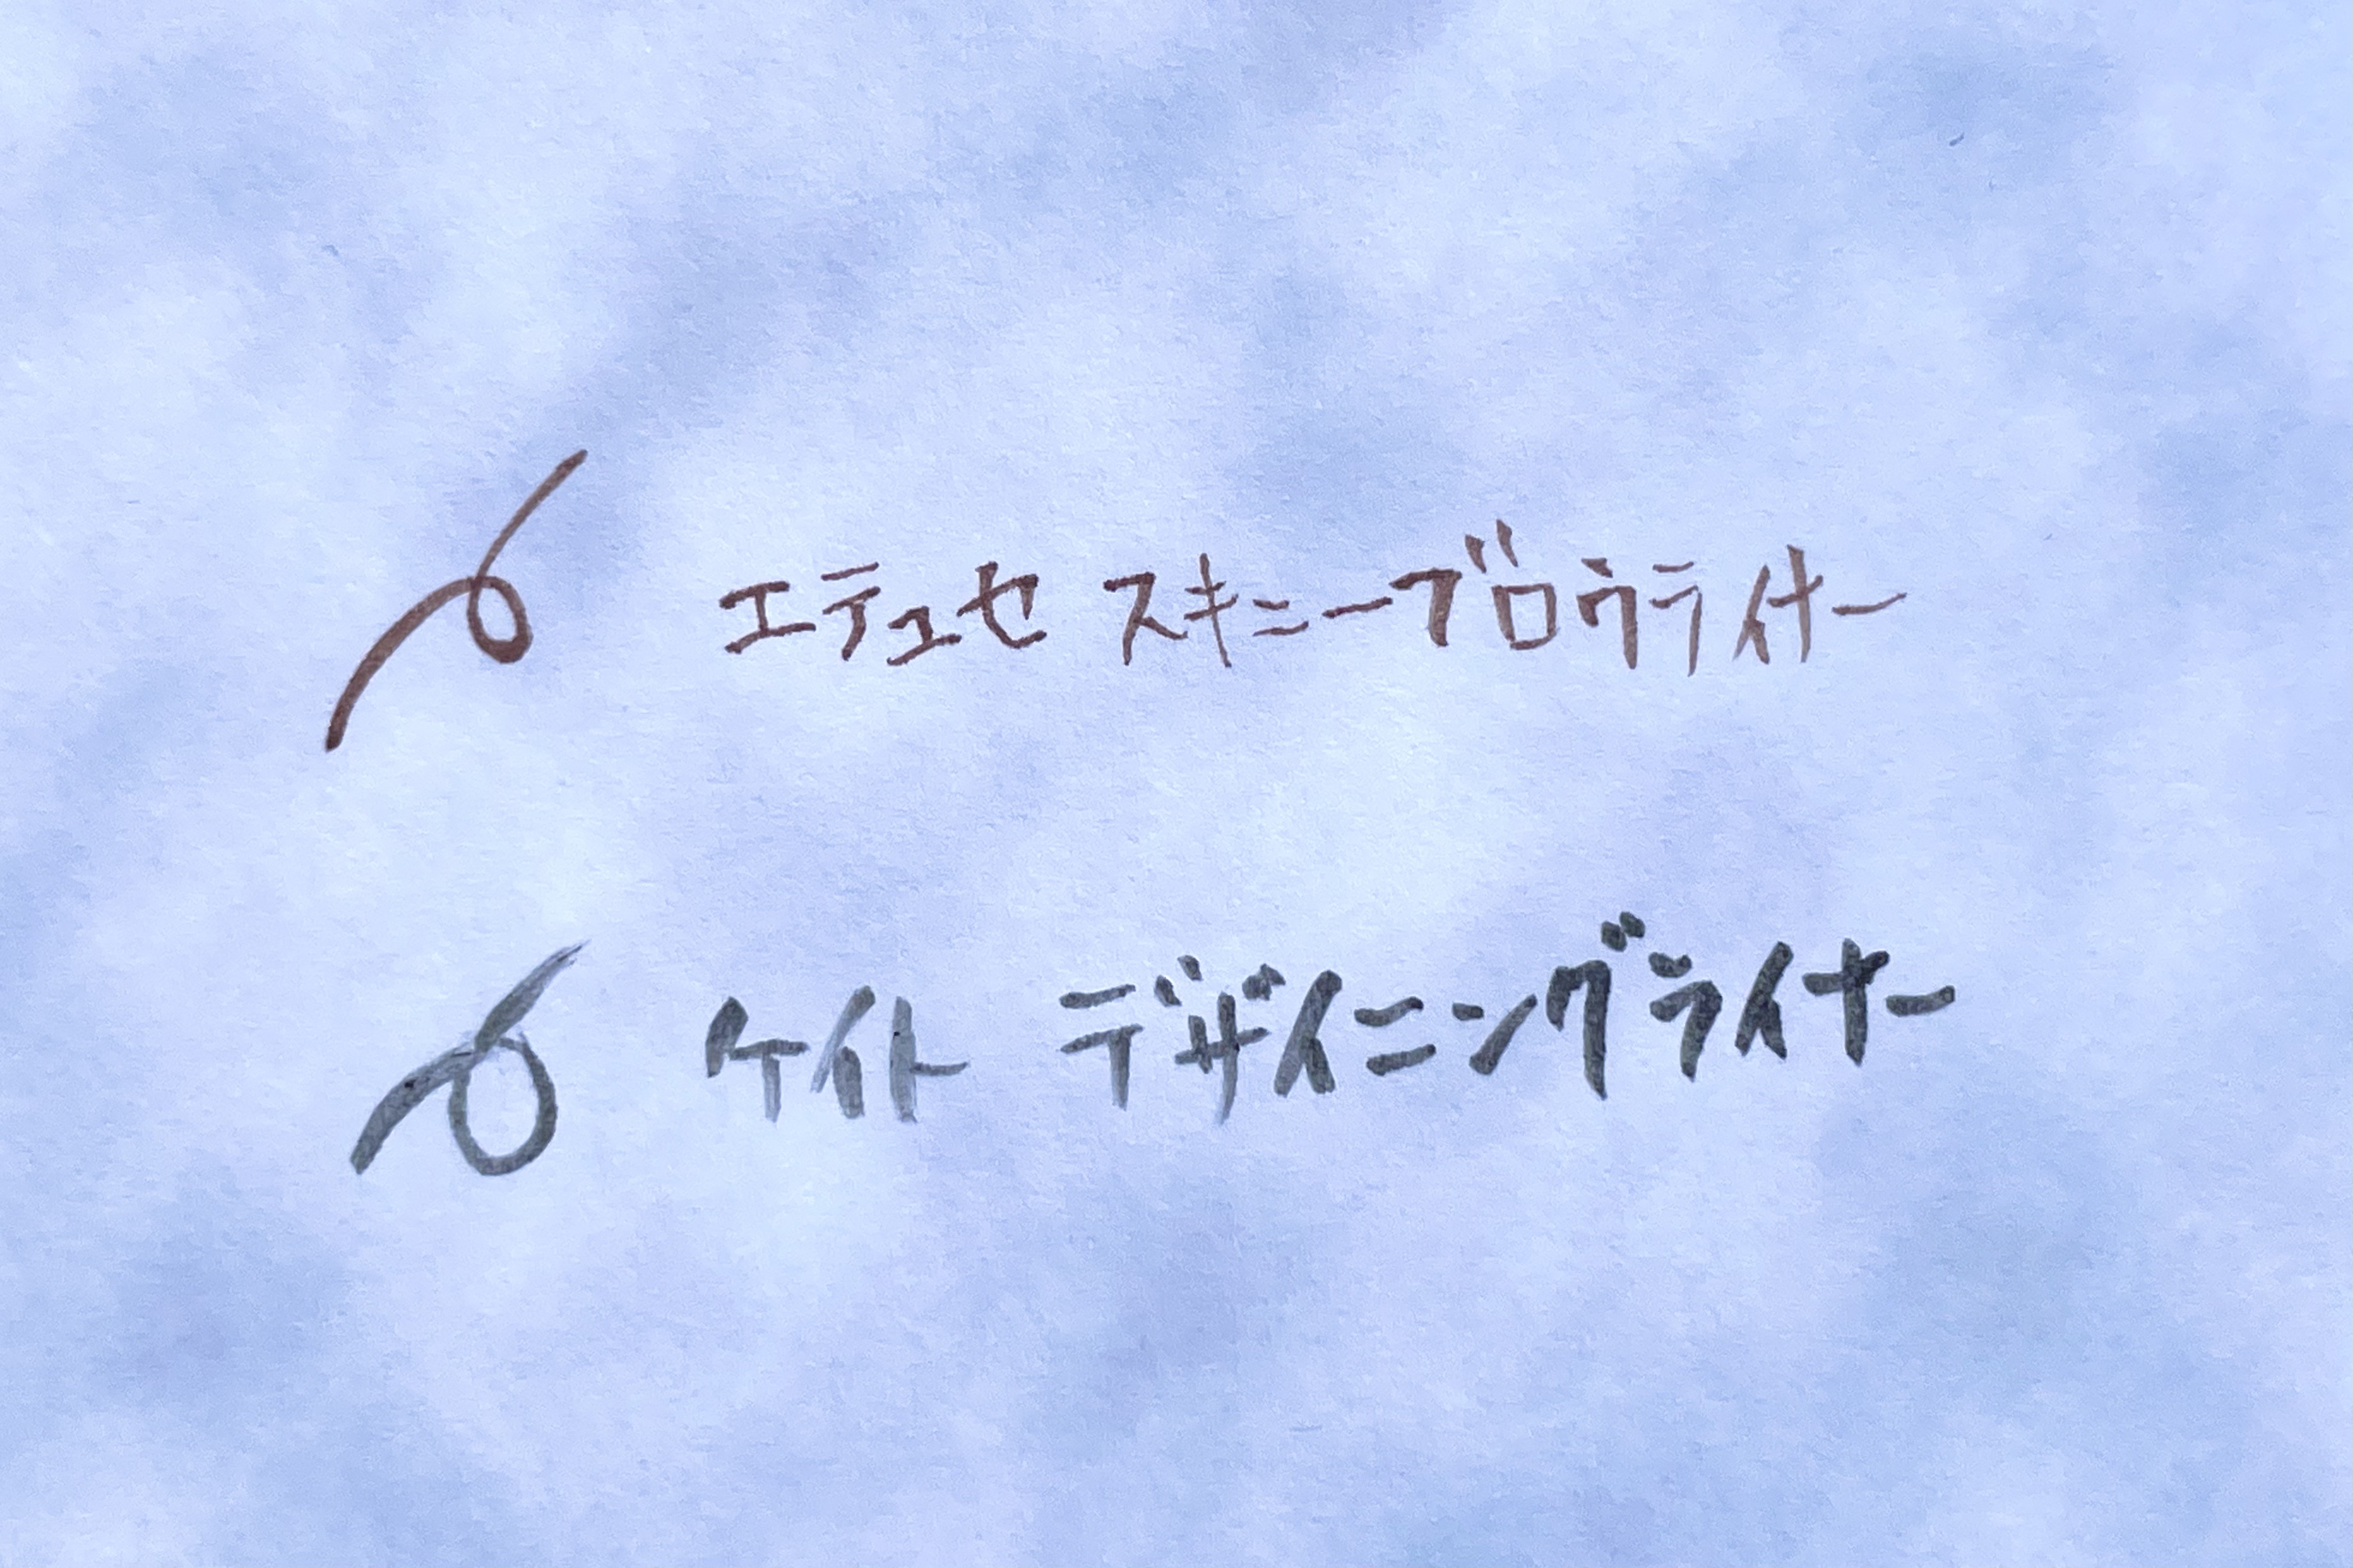 エテュセ スキニーブロウライナー
ケイト デザイニングライナー